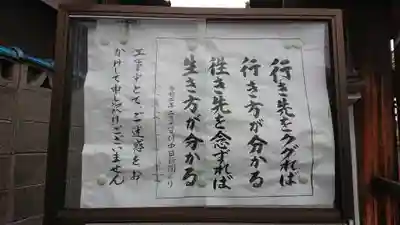 行き先をググれば
行き方が分かる
往き先を念ずれば
生き方が分かる
中日新聞より
工事中とて、ご迷惑をお
かけて申し訳ございません